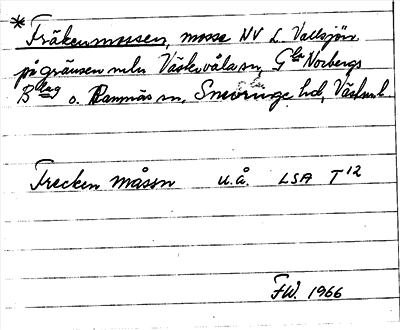 * Fräkenmossen, mosse NV L. Vallsjön
på gränsen mln Västervåla sn, Gla Norbergs
Blag o. Ramnäs sn, Snevringe hd, Västml
Frecken måssn u.å. LSA T12
F.W. 1966